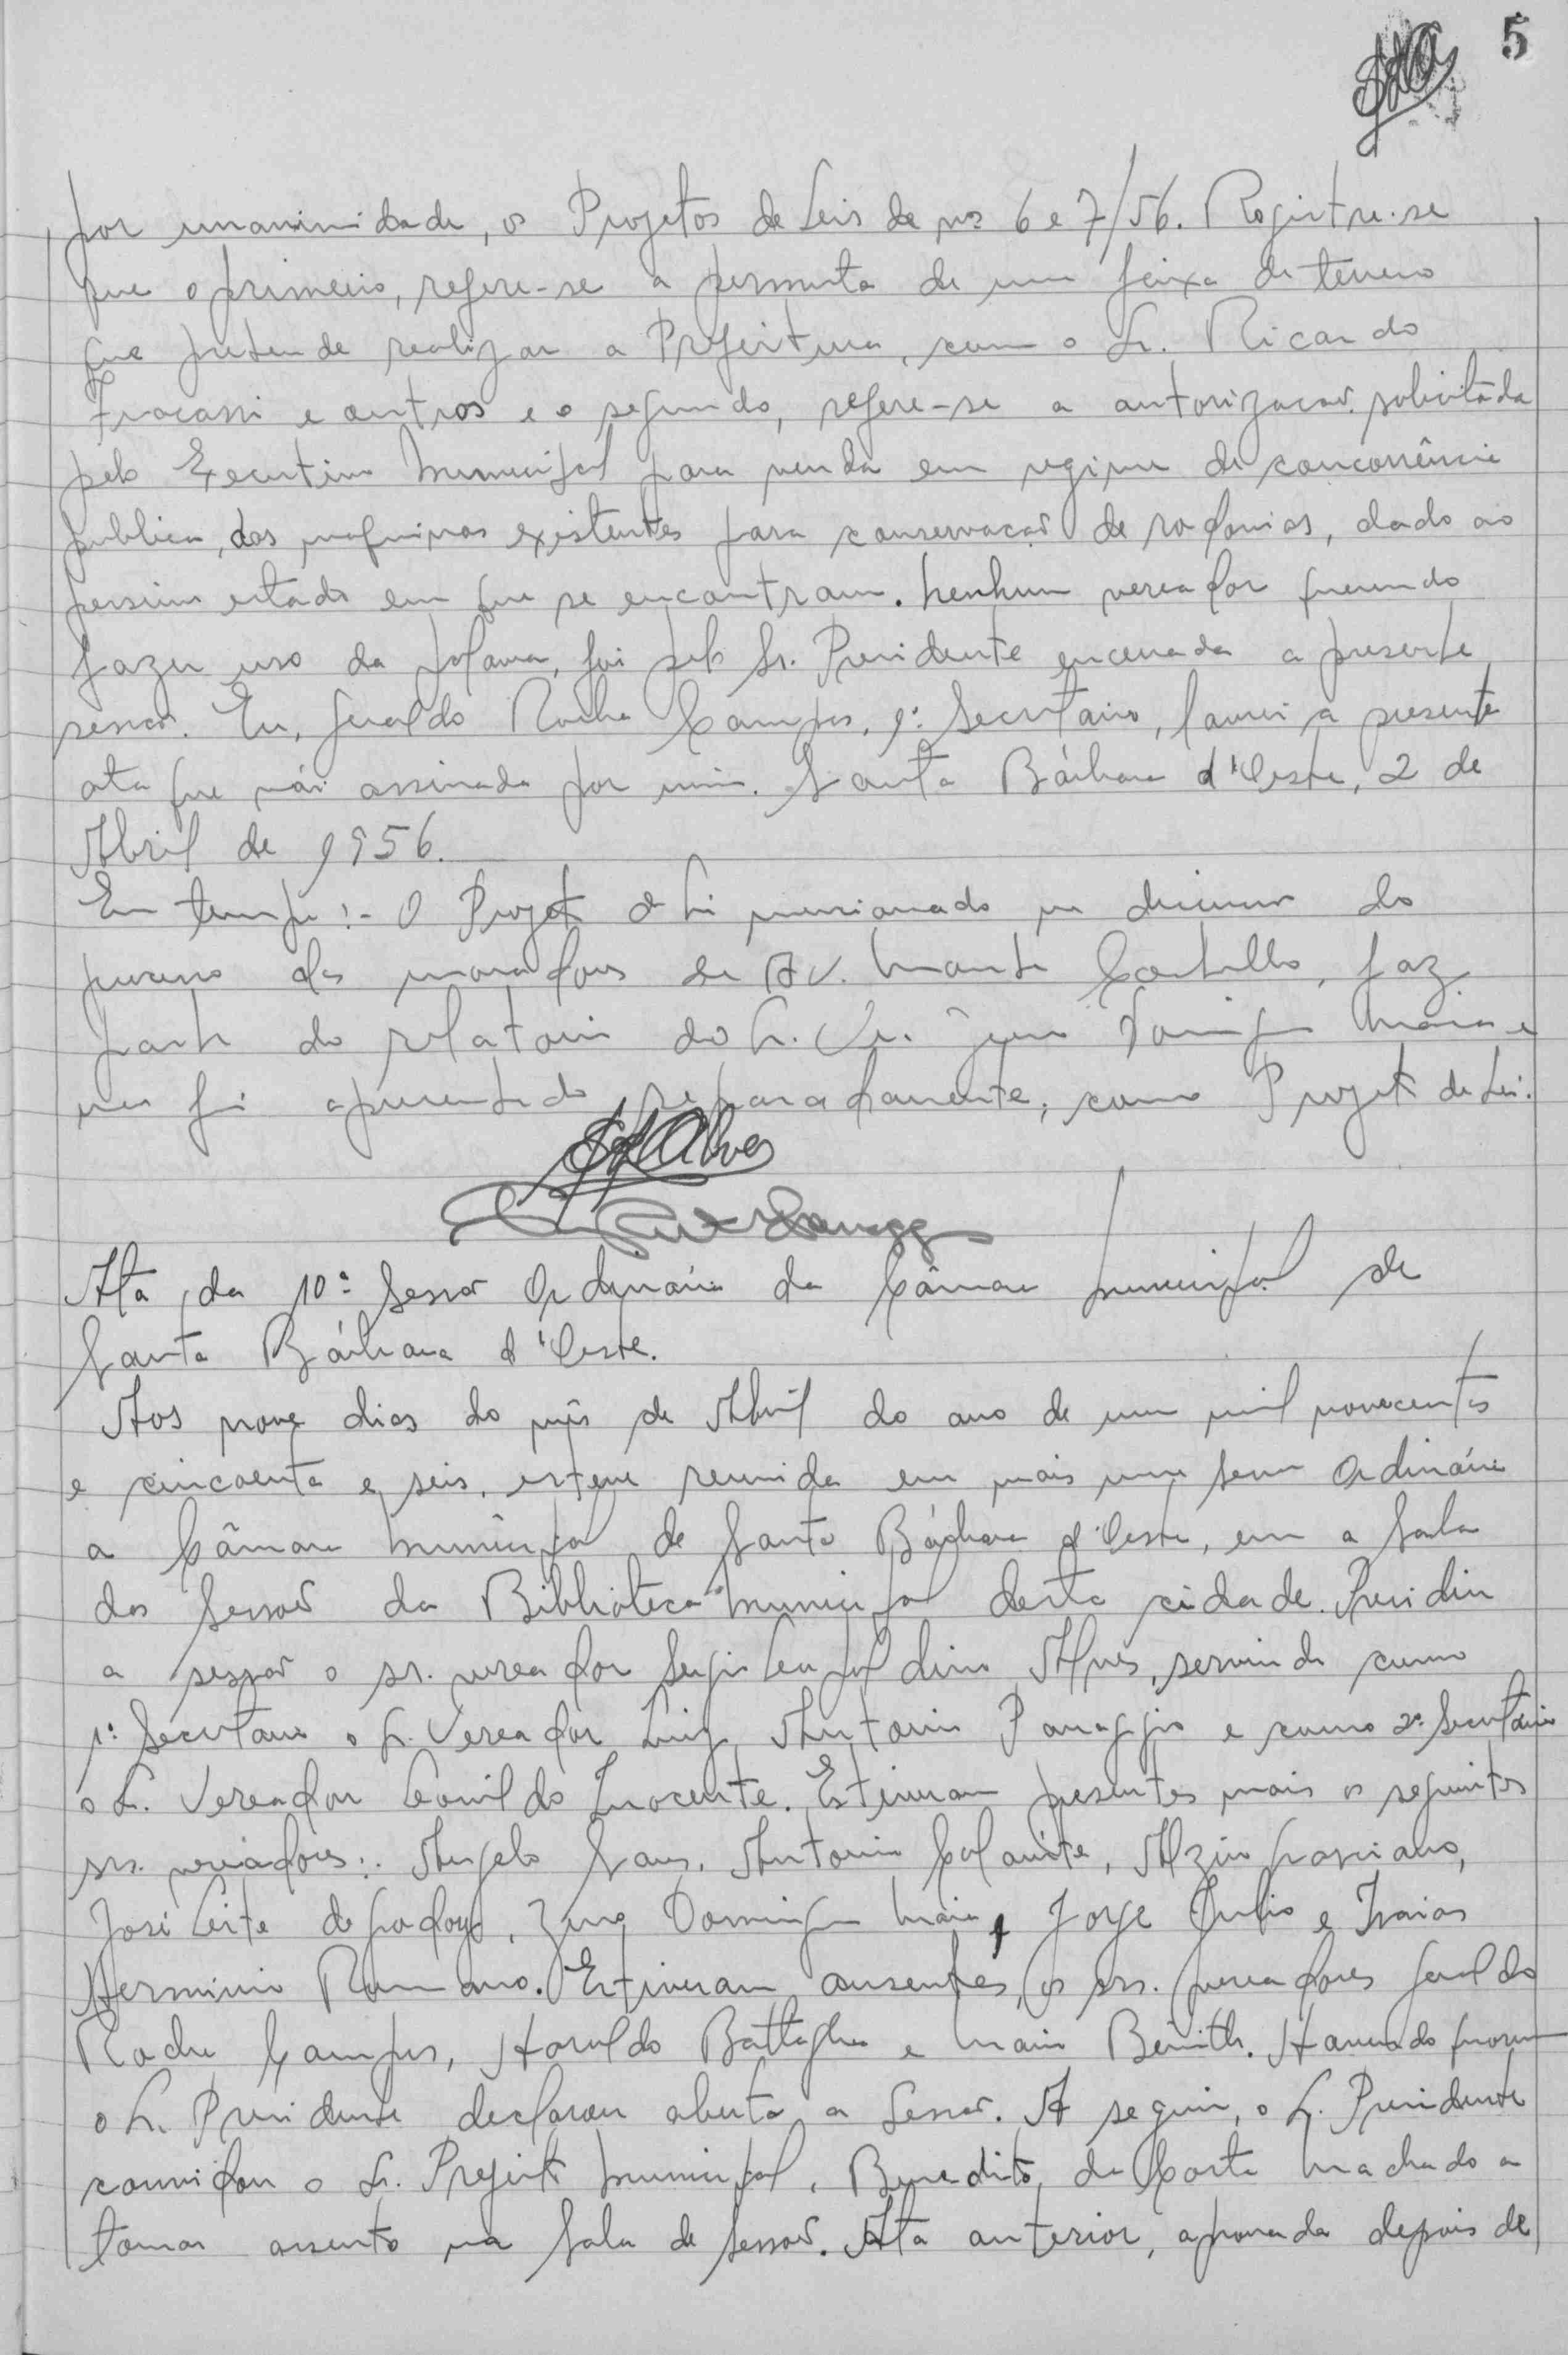 5
por unanimidade, os Projetos de Leis de nos 6 e 7/56. Registre-se
que o primeiro, refere-se a permuta de uma faixa de terreno
que pretende realizar a Prefeitura, com o Sr. Ricardo
Fracassi e outros e o segundo, refere-se a autorização solicitada
pelo Executivo Municipal para venda em regime de concorrência
publica, das maquinas existentes para conservação de rodovias, dado ao
pessimo estado em que se encontram. Nenhum vereador querendo
fazer uso da palavra, foi pelo Sr. Presidente encerrada a presente
sessão. Eu, Geraldo Rocha Campos, 1º Secretario, lavrei a presente
ata que vái assinada por mim. Santa Bárbara d'Oeste, 2 de
Abril de 1956.
Em tempo:- O Projeto de Lei mencionado no
processo dos moradores da Av. Monte Castello, faz
parte do relatorio do Sr. Ver. Zeno Domingos Maia e
não foi apresentado separadamente, como Projeto de Lei.
Alves
Ata da 10ª Sessão Ordinária da Câmara Municipal de
Santa Bárbara d'Oeste.
Aos nove dias do mês de Abril do ano de um mil novecentos
e cincoenta e seis, esteve reunida em mais uma sessão Ordinária
a Câmara Municipal de Santa Bárbara d'Oeste, em a Sala
das Sessões da Bibliotéca Municipal desta cidade. Presidiu
a sessão o sr. vereador Sergio Leopoldino Alves, servindo como
1º Secretario o Sr. Vereador Luiz Antonio Panaggio e como 2º Secretário
o Sr. Vereador Leonildo Inocente. Estiveram presentes mais os seguintes
srs. vereadores:. Angelo Sans, Antonio Colamite, Alziro Graciano,
José Leite de Godoy, Zeno Domingos Maia, Jorge Julio e Isaias
Herminio Romano. Estiveram ausentes, os srs. vereadores Geraldo
Rocha Campos, Haroldo Battaglia e Mario Benith. Havendo
o Sr. Presidente declarou aberta a Sessão. A seguir, o Sr. Presidente
convidou o Sr. Prefeito Municipal, Benedito da Costa Machado a
tomar assento na Sala de Sessões. Ata anterior, aprovada depois de